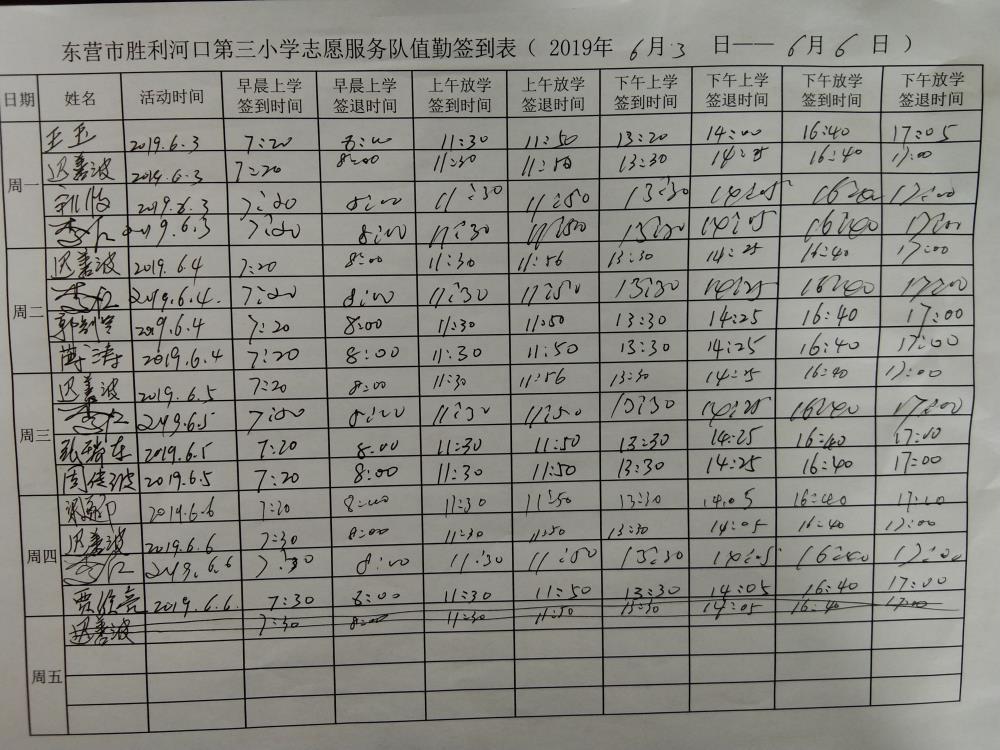 东营市胜利河口第三小学志愿服务队值勤签到表（ 2019年 6月 3 日—— 6月 6 日 ）
日期 姓名 活动时间 早晨上学签到时间 早晨上学签退时间 上午放学签到时间 上午放学签退时间 下午上学签到时间 下午上学签退时间 下午放学签到时间 下午放学签退时间
周一 王玉 2019.6.3 7:20 8:00 11:30 11:50 13:20 14:00 16:40 17:05
迟善波 2019.6.3 7:20 8:00 11:30 11:50 13:30 14:25 16:40 17:00
2019.6.3 7:20 8:00 11:30 11:50 13:30 14:05 16:40 17:00
2019.6.3 7:20 8:00 11:30 11:50 13:30 14:05 16:40 17:00
周二 迟善波 2019.6.4 7:20 8:00 11:30 11:56 13:30 14:25 16:40 17:00
2019.6.4. 7:20 8:00 11:30 11:50 13:30 14:25 16:40 17:00
2019.6.4 7:20 8:00 11:30 11:50 13:30 14:25 16:40 17:00
薄涛 2019.6.4 7:20 8:00 11:30 11:50 13:30 14:25 16:40 17:00
周三 迟善波 2019.6.5 7:20 8:00 11:30 11:56 13:30 14:25 16:40 17:00
2019.6.5 7:20 8:00 11:30 11:50 13:30 14:25 16:40 17:00
张瑞东 2019.6.5 7:20 8:00 11:30 11:50 13:30 14:25 16:40 17:00
2019.6.5 7:20 8:00 11:30 11:50 13:30 14:25 16:40 17:00
周四 2019.6.6 7:20 8:00 11:30 11:50 13:30 14:05 16:40 17:00
迟善波 2019.6.6 7:30 8:00 11:30 11:50 13:30 14:05 16:40 17:00
2019.6.6 7:30 8:00 11:30 11:50 13:30 14:05 16:40 17:00
2019.6.6. 7:30 8:00 11:30 11:50 13:30 14:05 16:40 17:00
周五 迟善波 7:30 8:00 11:30 11:50 13:30 14:05 16:40 17:00